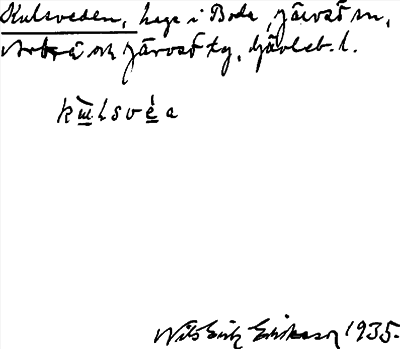 Kulsveden, hage i Boda, Järvsö sn,
Arbrå och Järvsö tg, Gävleb. l.
kɯ̀lsvéa
Nils Erik Eriksson 1935.